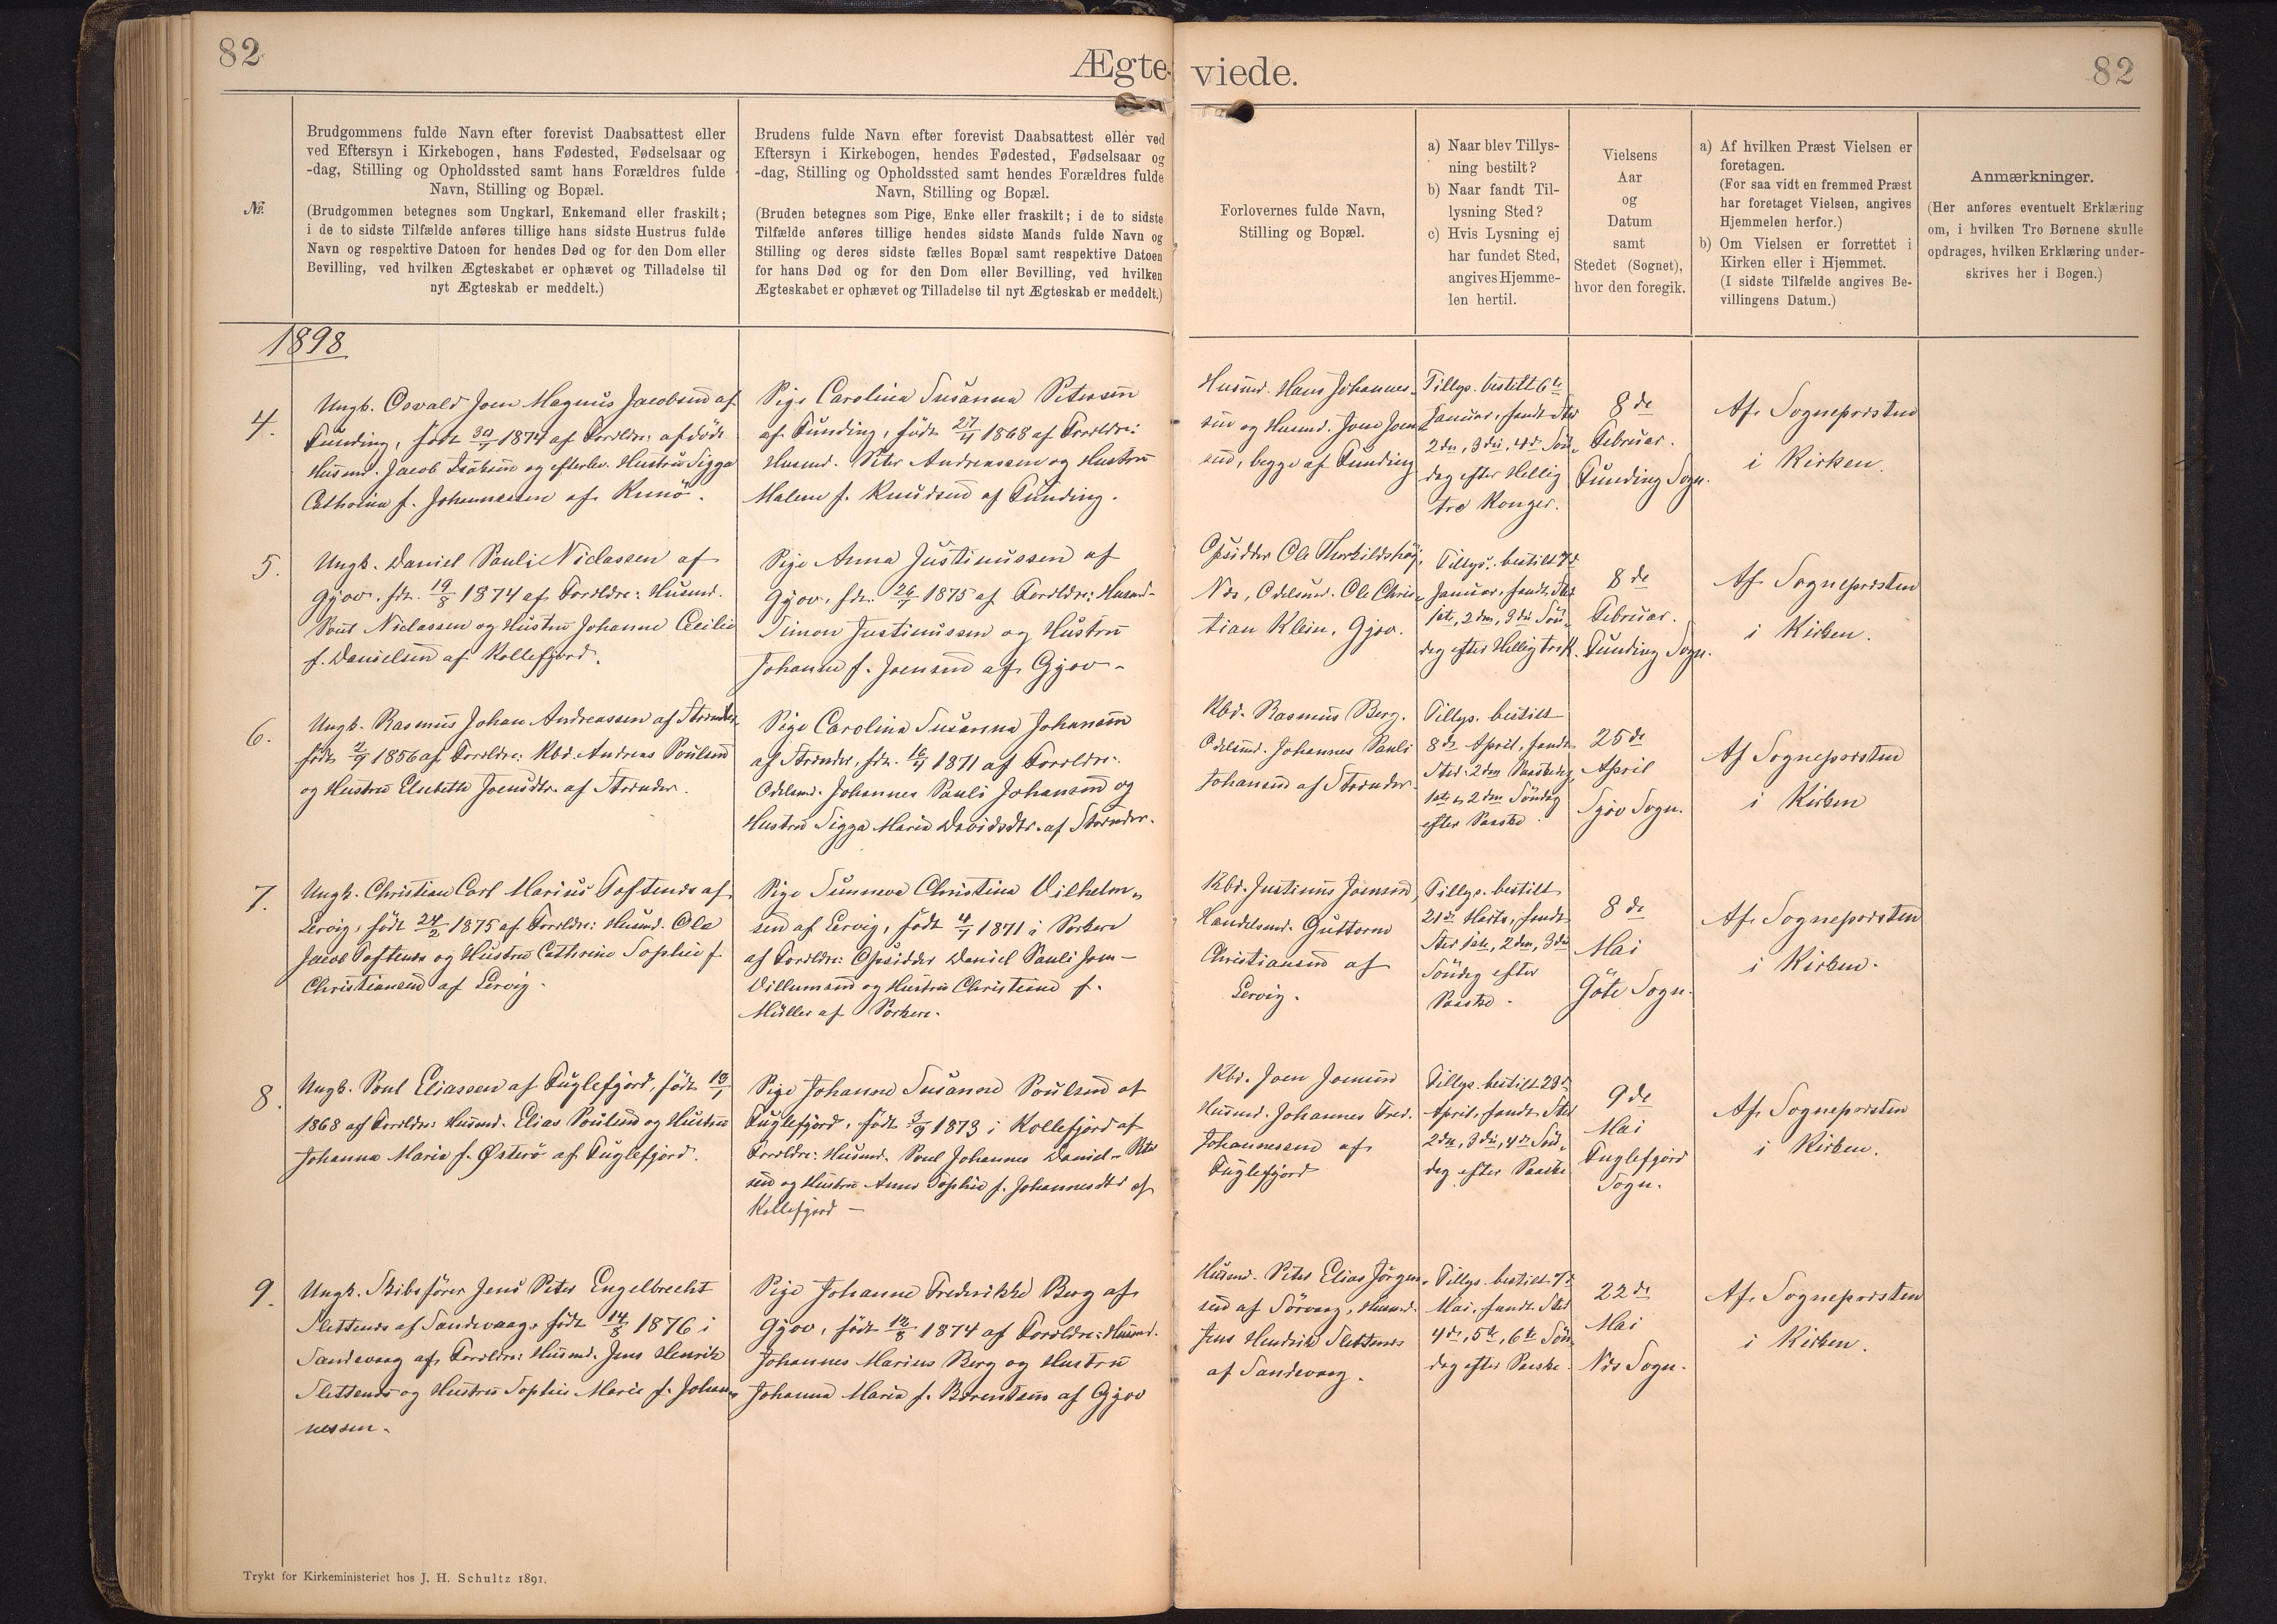 82
Ægte-
viede.
82
№.
Brudgommens fulde Navn efter forevist Daabsattest eller
ved Eftersyn i Kirkebogen, hans Fødested, Fødselsaar og
-dag, Stilling og Opholdssted samt hans Forældres fulde
Navn, Stilling og Bopæl.
(Brudgommen betegnes som Ungkarl, Enkemand eller fraskilt;
i de to sidste Tilfælde anføres tillige hans sidste Hustrus fulde
Navn og respektive Datoen for hendes Død og for den Dom eller
Bevilling, ved hvilken Ægteskabet er ophævet og Tilladelse til
nyt Ægteskab er meddelt.)
Brudens fulde Navn efter forevist Daabsattest eller ved
Eftersyn i Kirkebogen, hendes Fødested, Fødselsaar og
-dag, Stilling og Opholdssted samt hendes Forældres fulde
Navn, Stilling og Bopæl.
(Bruden betegnes som Pige, Enke eller fraskilt; i de to sidste
Tilfælde anføres tillige hendes sidste Mands fulde Navn og
Stilling og deres sidste fælles Bopæl samt respektive Datoen
for hans Død og for den Dom eller Bevilling, ved hvilken
Ægteskabet er ophævet og Tilladelse til nyt Ægteskab er meddelt.)
Forlovernes fulde Navn,
Stilling og Bopæl.
a) Naar blev Tillys-
ning bestilt?
b) Naar fandt Til-
lysning Sted?
c) Hvis Lysning ej
har fundet Sted,
angives Hjemme-
len hertil.
Vielsens
Aar
og
Datum
samt
Stedet (Sognet),
hvor den foregik.
a) Af hvilken Præst Vielsen er
foretagen.
(For saa vidt en fremmed Præst
har foretaget Vielsen, angives
Hjemmelen herfor.)
b) Om Vielsen er forrettet i
Kirken eller i Hjemmet.
(I sidste Tilfælde angives Be-
villingens Datum.)
Anmærkninger.
(Her anføres eventuelt Erklæring
om, i hvilken Tro Børnene skulle
opdrages, hvilken Erklæring under-
skrives her i Bogen.)
1898
4.
Ungk. Osvald Joen Magnus Jacobsen af
Funding, født 30/7 1874 af Forældre: afdøde
Husmd. Jacob Isaksen og efterlev. Hustru Sigga
Cathrina f. Johannessen af Kunø.
Pige Carolina Susanna Petersen
af Funding, født 27/4 1868 af Forældre:
Husmd. Peter Andreassen og Hustru
Malene f. Knudsen af Funding.
Husmd. Hans Johannes-
sen og Husmd. Joen Joen-
sen, begge af Funding
Tillys. bestilt 6te
Januar, fandt Sted
2den, 3die, 4de Søn-
dag efter Hellig
tre Konger.
8de
Februar.
Funding Sogn.
Af Sognepræsten
i Kirken.
5.
Ungk. Daniel Pauli Niclassen af
Gjov, fdt. 19/8 1874 af Forældre: Husmd.
Poul Niclassen og Hustru Johanne Cecilie
f. Danielsen af Kollefjord.
Pige Anna Justinussen af
Gjov, fdt. 26/7 1875 af Forældre: Husmd-
Simon Justinussen og Hustru
Johanne f. Joensen af Gjov-
Opsidder Ole Thorkildshøj,
Næs, Odelsmd. Ole Chris-
tian Klein, Gjov.
Tillys. bestilt 7d
Januar, fandt Sted
1ste, 2den, 3die Søn-
dag efter Hellig tre K.
8de
Februar.
Funding Sogn.
Af Sognepræsten
i Kirken.
6.
Ungk. Rasmus Johan Andreassen af Strænder
født 2/9 1856 af Forældre: Kbd. Andreas Poulsen
og Hustru Elsebeth Joensdtr. af Strænder.
Pige Carolina Susanna Johansen
af Strænder, fdt. 16/4 1871 af Forældre:
Odelsmd. Johannes Pauli Johansen og
Hustru Sigga Maria Davidsdtr. af Strænder.
Kbd. Rasmus Berg.
Odelsmd. Johannes Pauli
Johansen af Strænder
Tillys. bestilt
8de April, fandt
Sted: 2den Paaskedag,
1ste & 2den Søndag
efter Paaske.
25de
April
Sjov Sogn.
Af Sognepræsten
i Kirken
7.
Ungk. Christian Carl Marius Toftenes af
Lervig, født 24/2 1875 af Forældre: Husmd. Ole
Jacob Toftenes og Hustru Cathrine Sophie f.
Christiansen af Lervig.
Pige Sunneva Christina Vilhelm-
sen af Lervig, født 4/7 1871 i Porkere
af Forældre: Opsidder Daniel Pauli Joen-
Villumsen og Hustru Christine f.
Müller af Porkere.
Kbd. Justinus Joensen,
Handelsmd. Guttorm
Christiansen af
Lervig.
Tillys. bestilt
21de Marts, fandt
Sted 1ste, 2den, 3die
Søndag efter
Paaske.
8de
Mai
Gøte Sogn.
Af Sognepræsten
i Kirken.
8.
Ungk. Poul Eliassen af Fuglefjord, født 13/1
1868 af Forældre: Husmd. Elias Poulsen og Hustru
Johanna Maria f. Østerø af Fuglefjord.
Pige Johanne Susanne Poulsen af
Fuglefjord, født 3/9 1873 i Kollefjord af
Forældre: Husmd. Poul Johannes Daniel-
sen og Hustru Anna Sophie f. Johannesdtr af
Kollefjord —
Kbd. Joen Joensen
Husmd. Johannes Fred.
Johannessen af
Fuglefjord
Tillys. bestilt 23d
April, fandt Sted
2den, 3die, 4de Søn-
dag efter Paaske
9de
Mai
Fuglefjord
Sogn.
Af Sognepræsten
i Kirken.
9.
Ungk. Skibsfører Jens Peter Engelbrecht
Slettenes af Sandevaag, født 14/8 1876 i
Sandevaag af Forældre: Husmd. Jens Henrik
Slettenes og Hustru Sophie Marie f. Johan-
nessen.
Pige Johanne Frederikke Berg af
Gjov, født 12/8 1874 af Forældre: Husmd.
Johannes Marius Berg og Hustru
Johanna Maria f. Berentsen af Gjov
Husmd. Peter Elias Jørgen-
sen af Sørvaag, Husmd.
Jens Hendrik Slettenes
af Sandevaag.
Tillys. bestilt 7d
Mai, fandt Sted
4de, 5te, 6te Søn-
dag efter Paaske
22de
Mai
Næs Sogn.
Af Sognepræsten
i Kirken.
Trykt for Kirkeministeriet hos J. H. Schultz 1891.